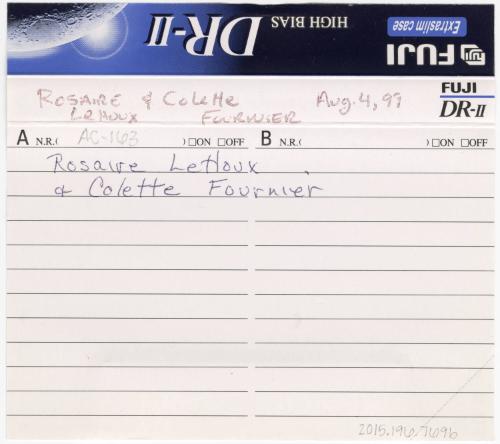 HIGH BIAS DR-II
Extraslim case
FUJI
FUJI
DR-II
ROSAIRE & Colette Aug. 4, 99
LEHOUX FOURNIER
A N.R.( AC-163 ) □ON □OFF B N.R.( ) □ON □OFF
Rosaire LeHoux
& Colette Fournier
2015.196.7696